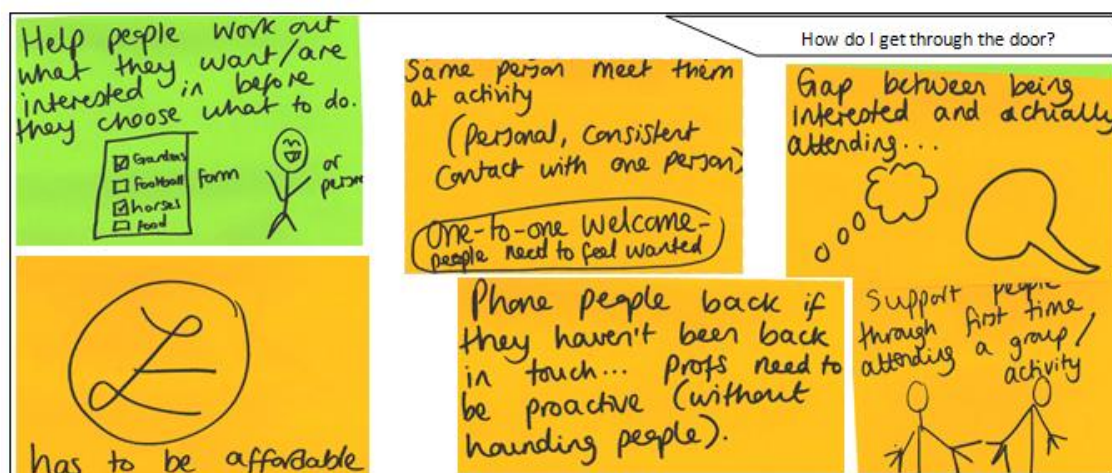 How do I get through the door?
Help people work out
what they want/are
interested in before
they choose what to do.
Gardens
Football
horses
food
Form
or
person
Same person meet them
at activity
(Personal, consistent
contact with one person)
One-to-one welcome-
people need to feel wanted
Gap between being
interested and actually
attending...
£
has to be affordable
Phone people back if
they haven't been back
in touch... Profs need to
be proactive (without
hounding people).
Support people
through first time
attending a group/
activity